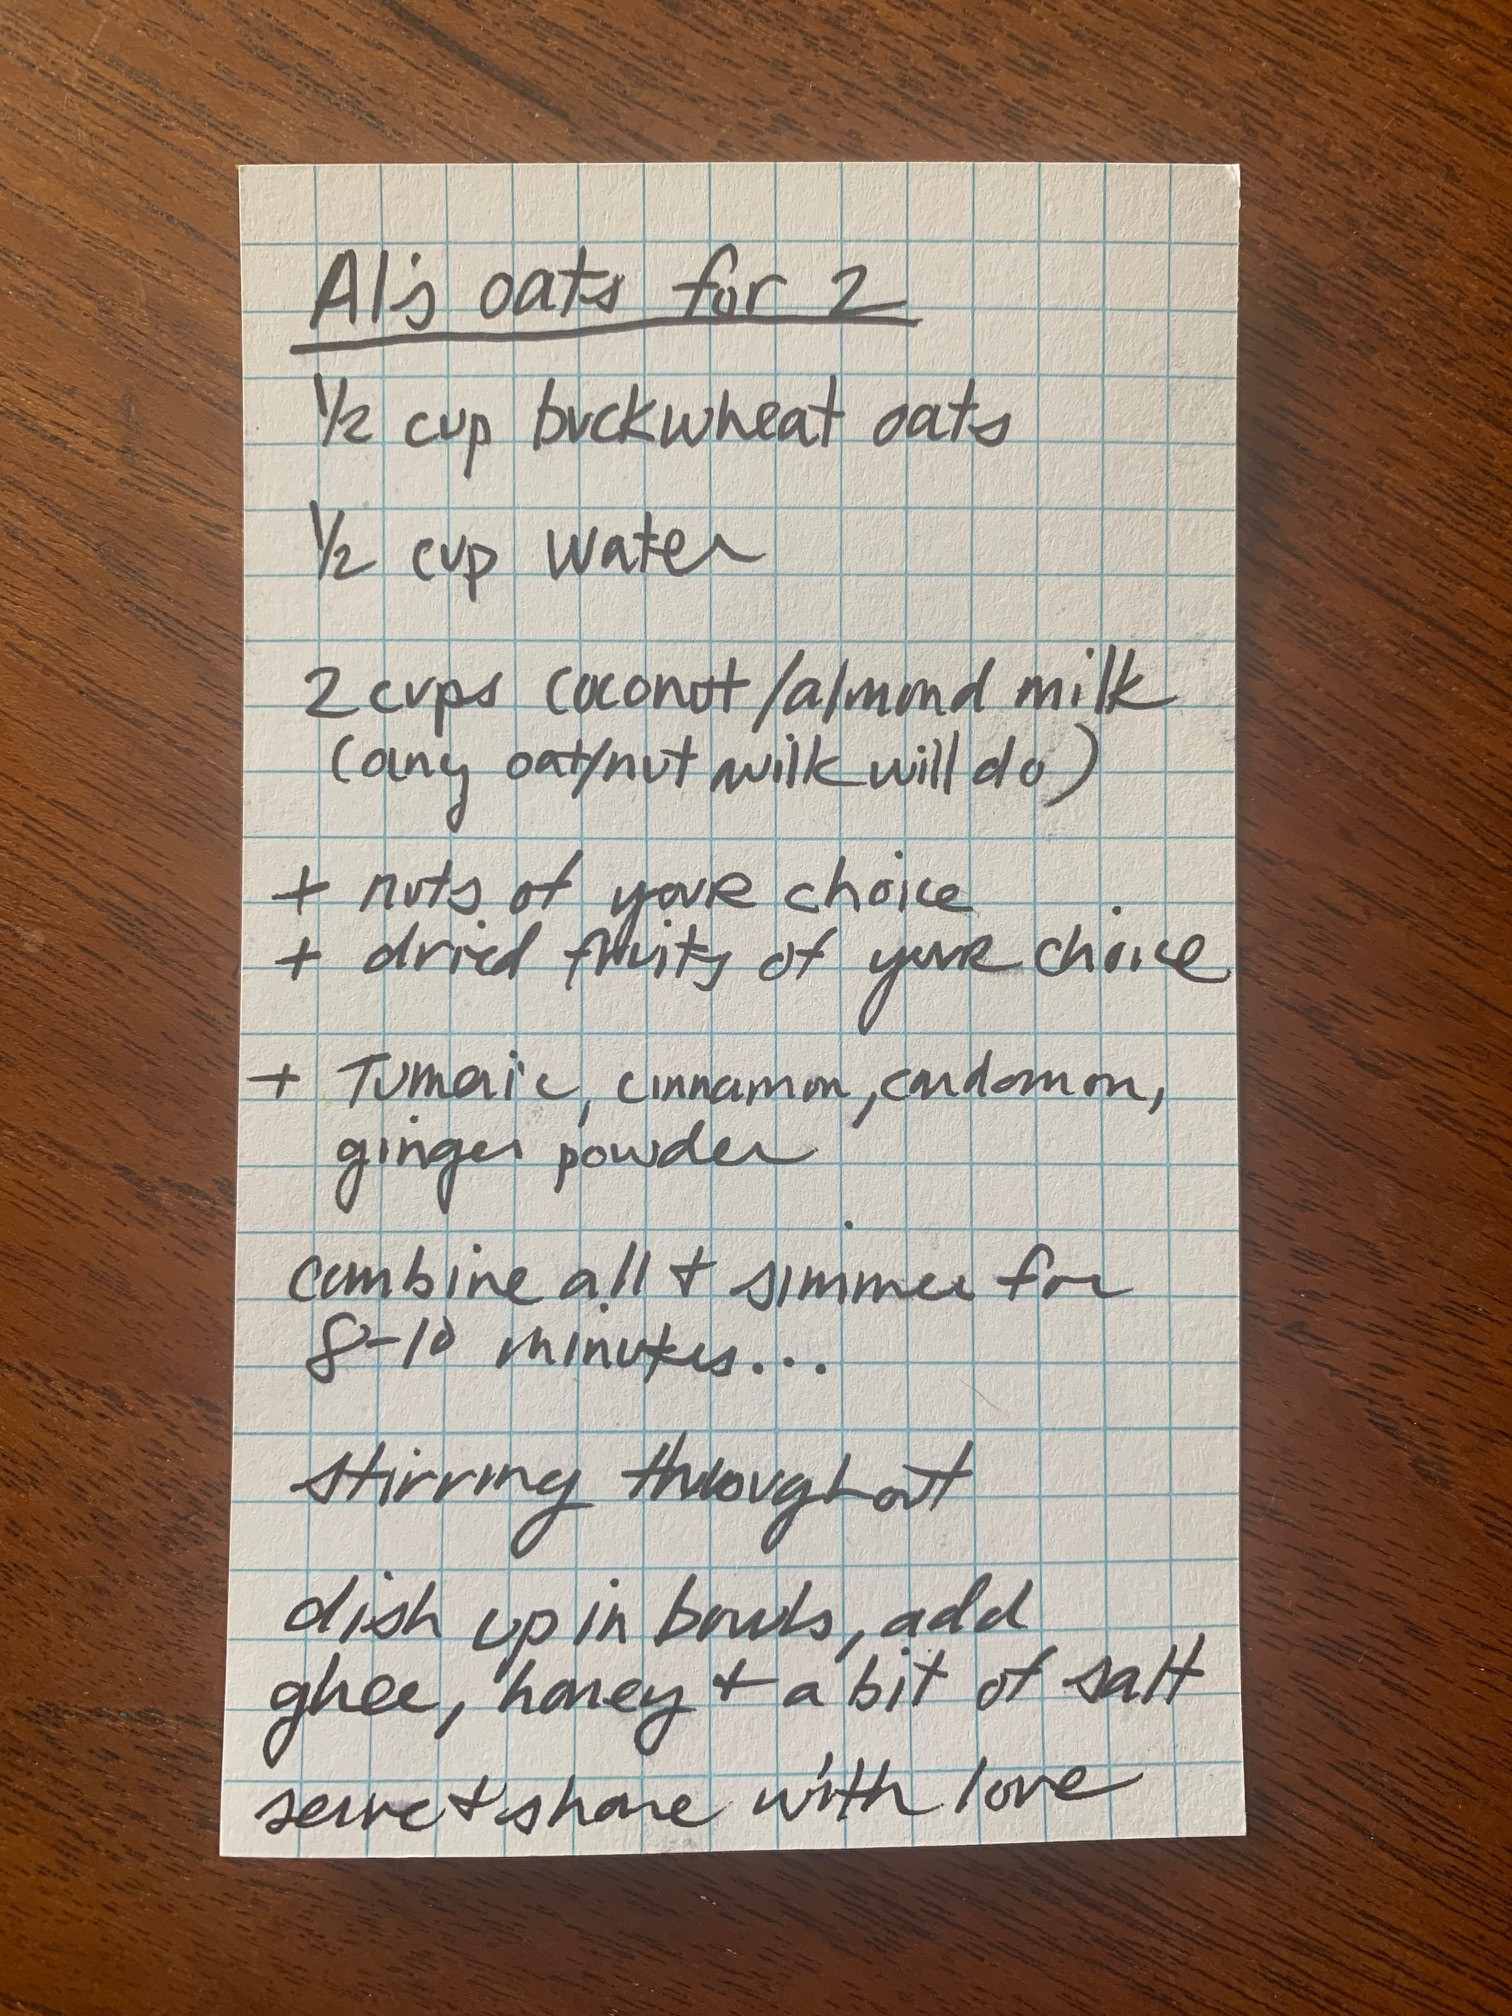 Al's oats for 2
1/2 cup buckwheat oats
1/2 cup water
2 cups coconut/almond milk
(any oat/nut milk will do)
+ nuts of your choice
+ dried fruits of your choice
+ Tumeric, cinnamon, cardamon,
ginger powder
combine all + simmer for
8-10 minutes...
stirring throughout
dish up in bowls, add
ghee, honey + a bit of salt
serve + share with love